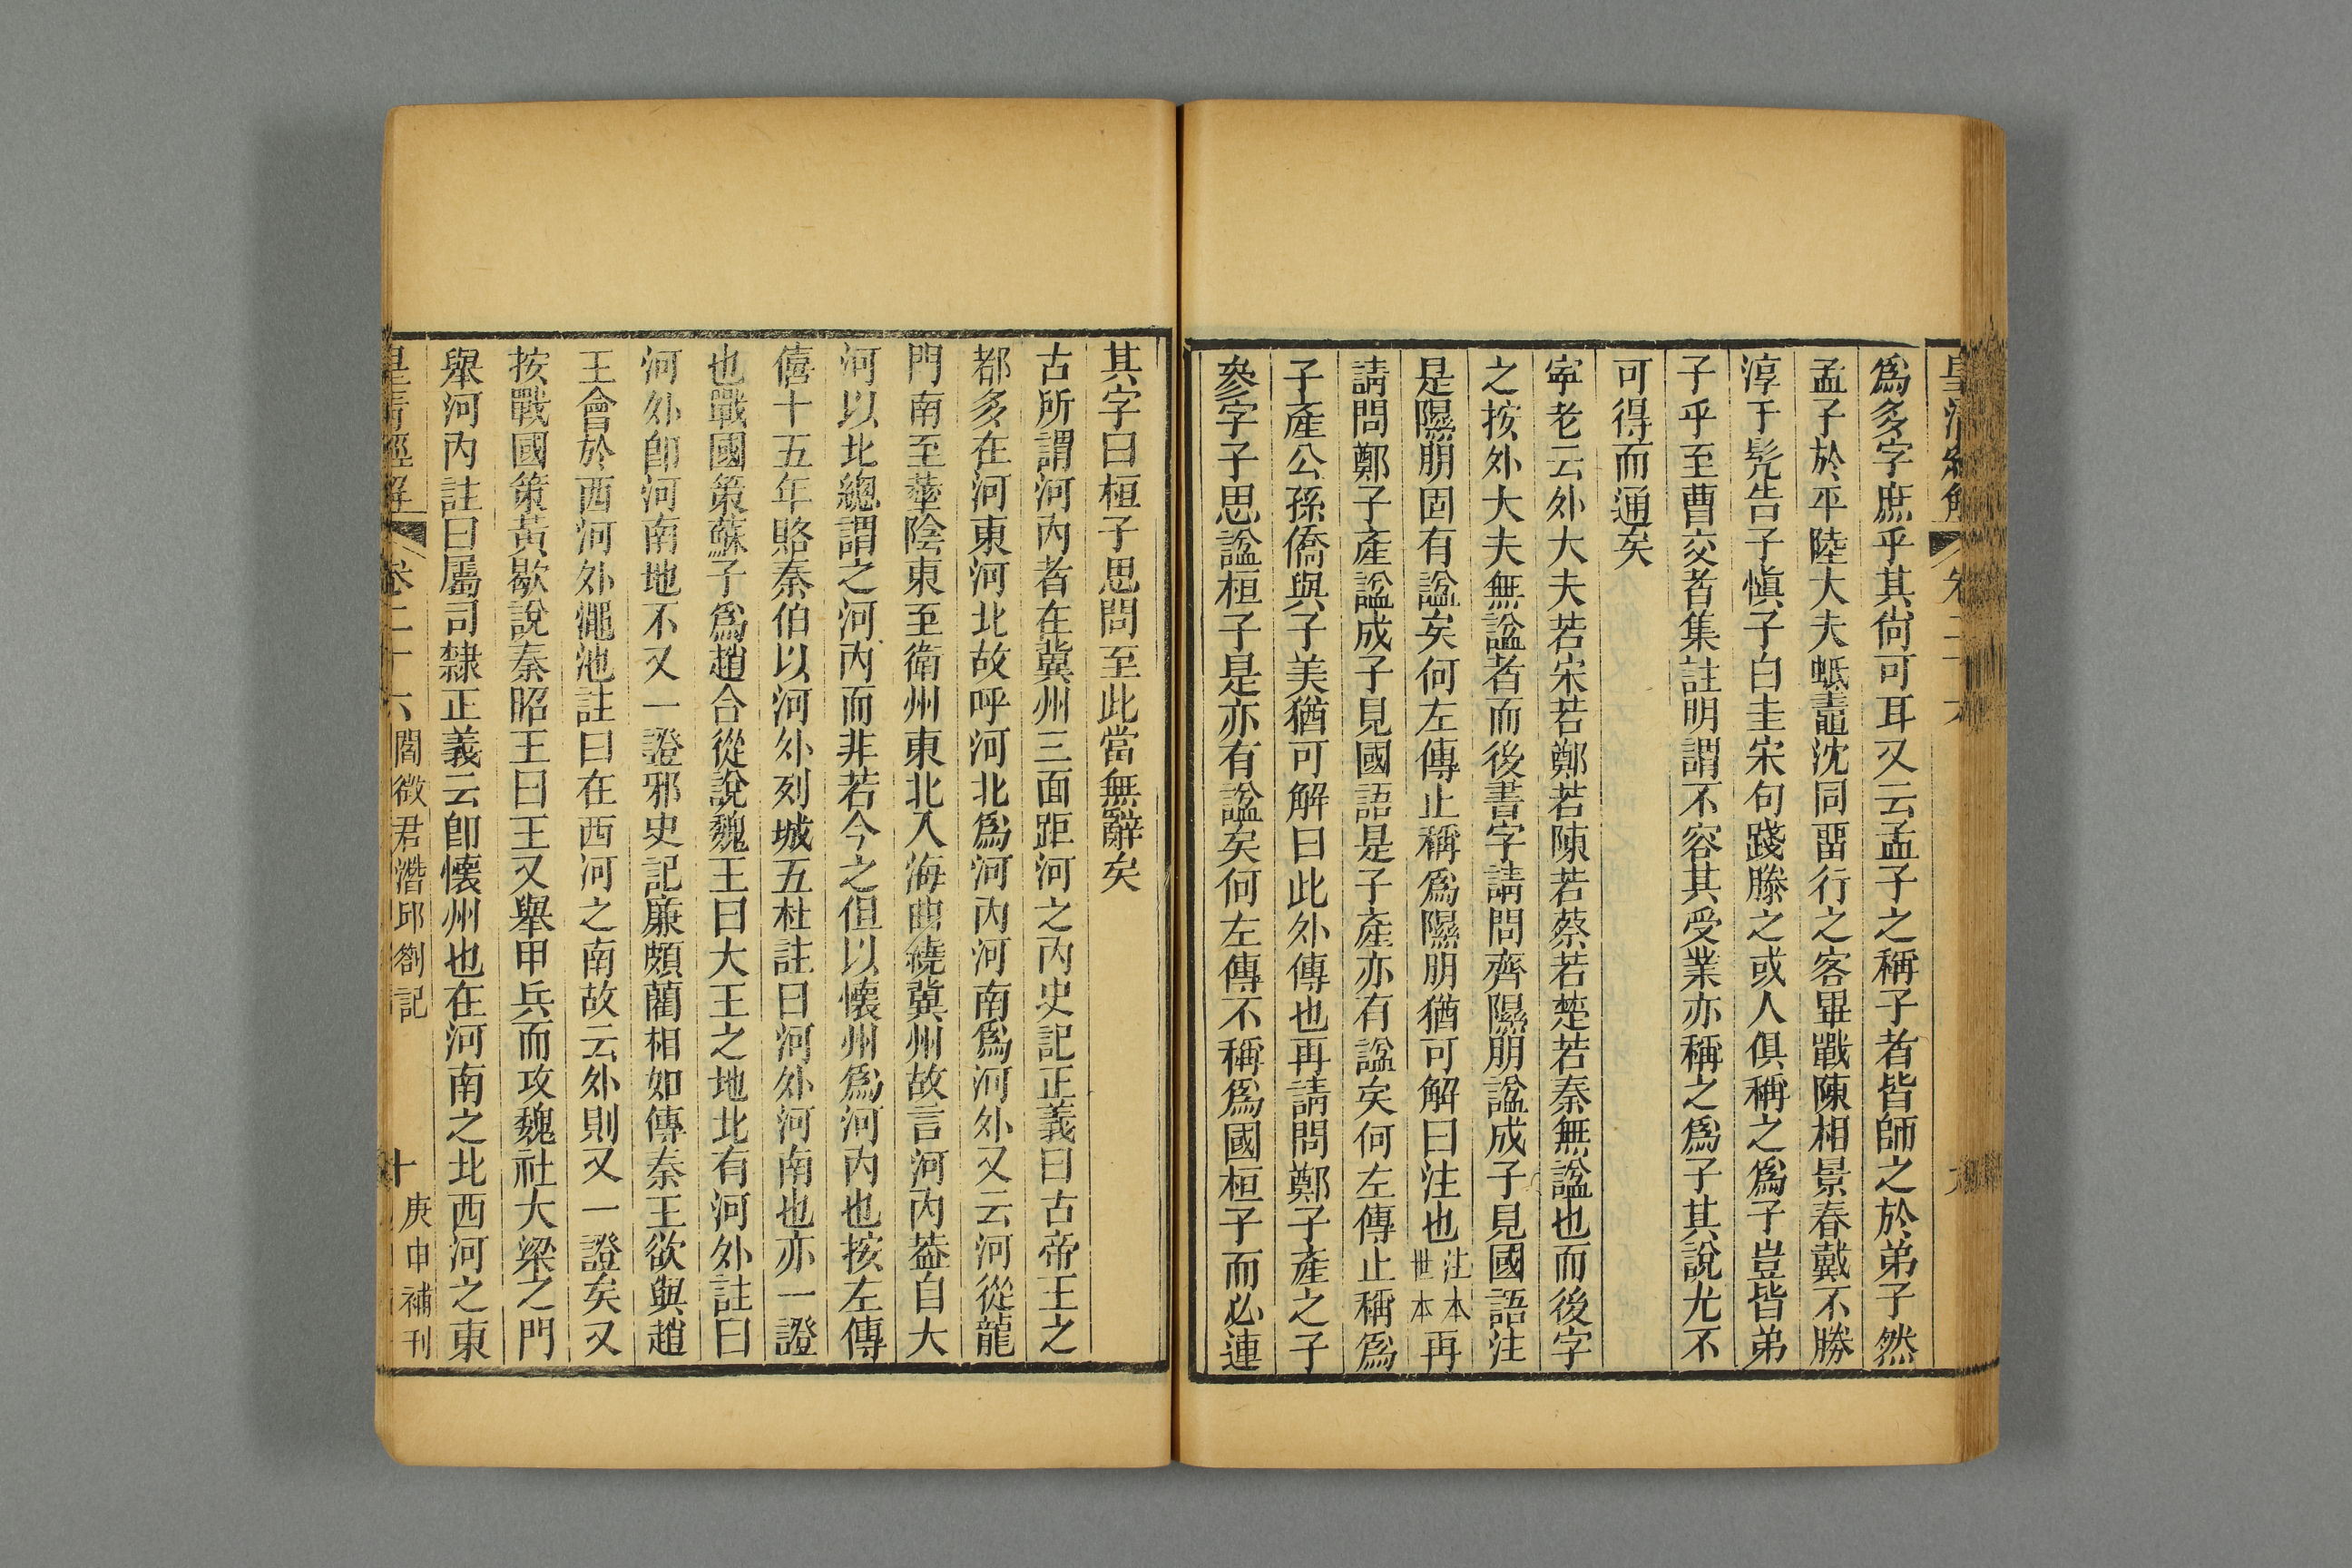 皇清經解
卷二十六
九
爲多字庶乎其尙可耳又云孟子之稱子者皆師之於弟子然
孟子於平陸大夫蚳鼃沈同畱行之客畢戰陳相景春戴不勝
淳于髡告子愼子白圭宋句踐滕之或人俱稱之爲子豈皆弟
子乎至曹交者集註明謂不容其受業亦稱之爲子其說尤不
可得而通矣
寧老云外大夫若宋若鄭若陳若蔡若楚若秦無諡也而後字
之按外大夫無諡者而後書字請問齊隰朋諡成子見國語注
是隰朋固有諡矣何左傳止稱爲隰朋猶可解曰注也注本世本再
請問鄭子產諡成子見國語是子產亦有諡矣何左傳止稱爲
子產公孫僑與子美猶可解曰此外傳也再請問鄭子產之子
參字子思諡桓子是亦有諡矣何左傳不稱爲國桓子而必連
其字曰桓子思問至此當無辭矣
古所謂河內者在冀州三面距河之內史記正義曰古帝王之
都多在河東河北故呼河北爲河內河南爲河外又云河從龍
門南至華陰東至衛州東北入海曲繞冀州故言河內葢自大
河以北總謂之河內而非若今之但以懷州爲河內也按左傳
僖十五年賂秦伯以河外列城五杜註曰河外河南也亦一證
也戰國策蘇子爲趙合從說魏王曰大王之地北有河外註曰
河外卽河南地不又一證邪史記廉頗藺相如傳秦王欲與趙
王會於西河外澠池註曰在西河之南故云外則又一證矣又
按戰國策黃歇說秦昭王曰王又舉甲兵而攻魏社大梁之門
舉河內註曰屬司隸正義云卽懷州也在河南之北西河之東
皇清經解
卷二十六
閻徵君潛邱劄記
十
庚申補刊